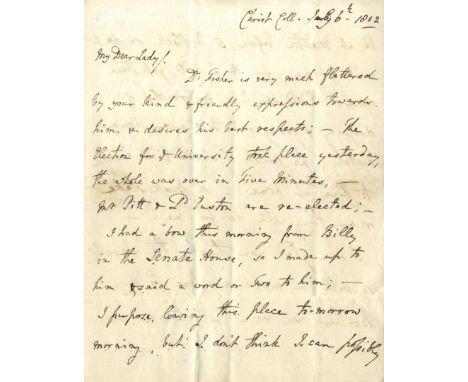 Christ Coll. July 6th. 1802
My Dear Lady!
Dr. Fisher is very much flattered
by your kind & friendly expressions towards
him, & desires his best respects; — The
Election for ye University took place yesterday,
the whole was over in five Minutes, —
Mr Pitt & Ld Euston are re-elected; —
I had a bow this morning from Billy
in the Senate House, so I made up to
him & said a word or Two to him; —
I purpose leaving this place to-morrow
morning, but I don't think I can possibly